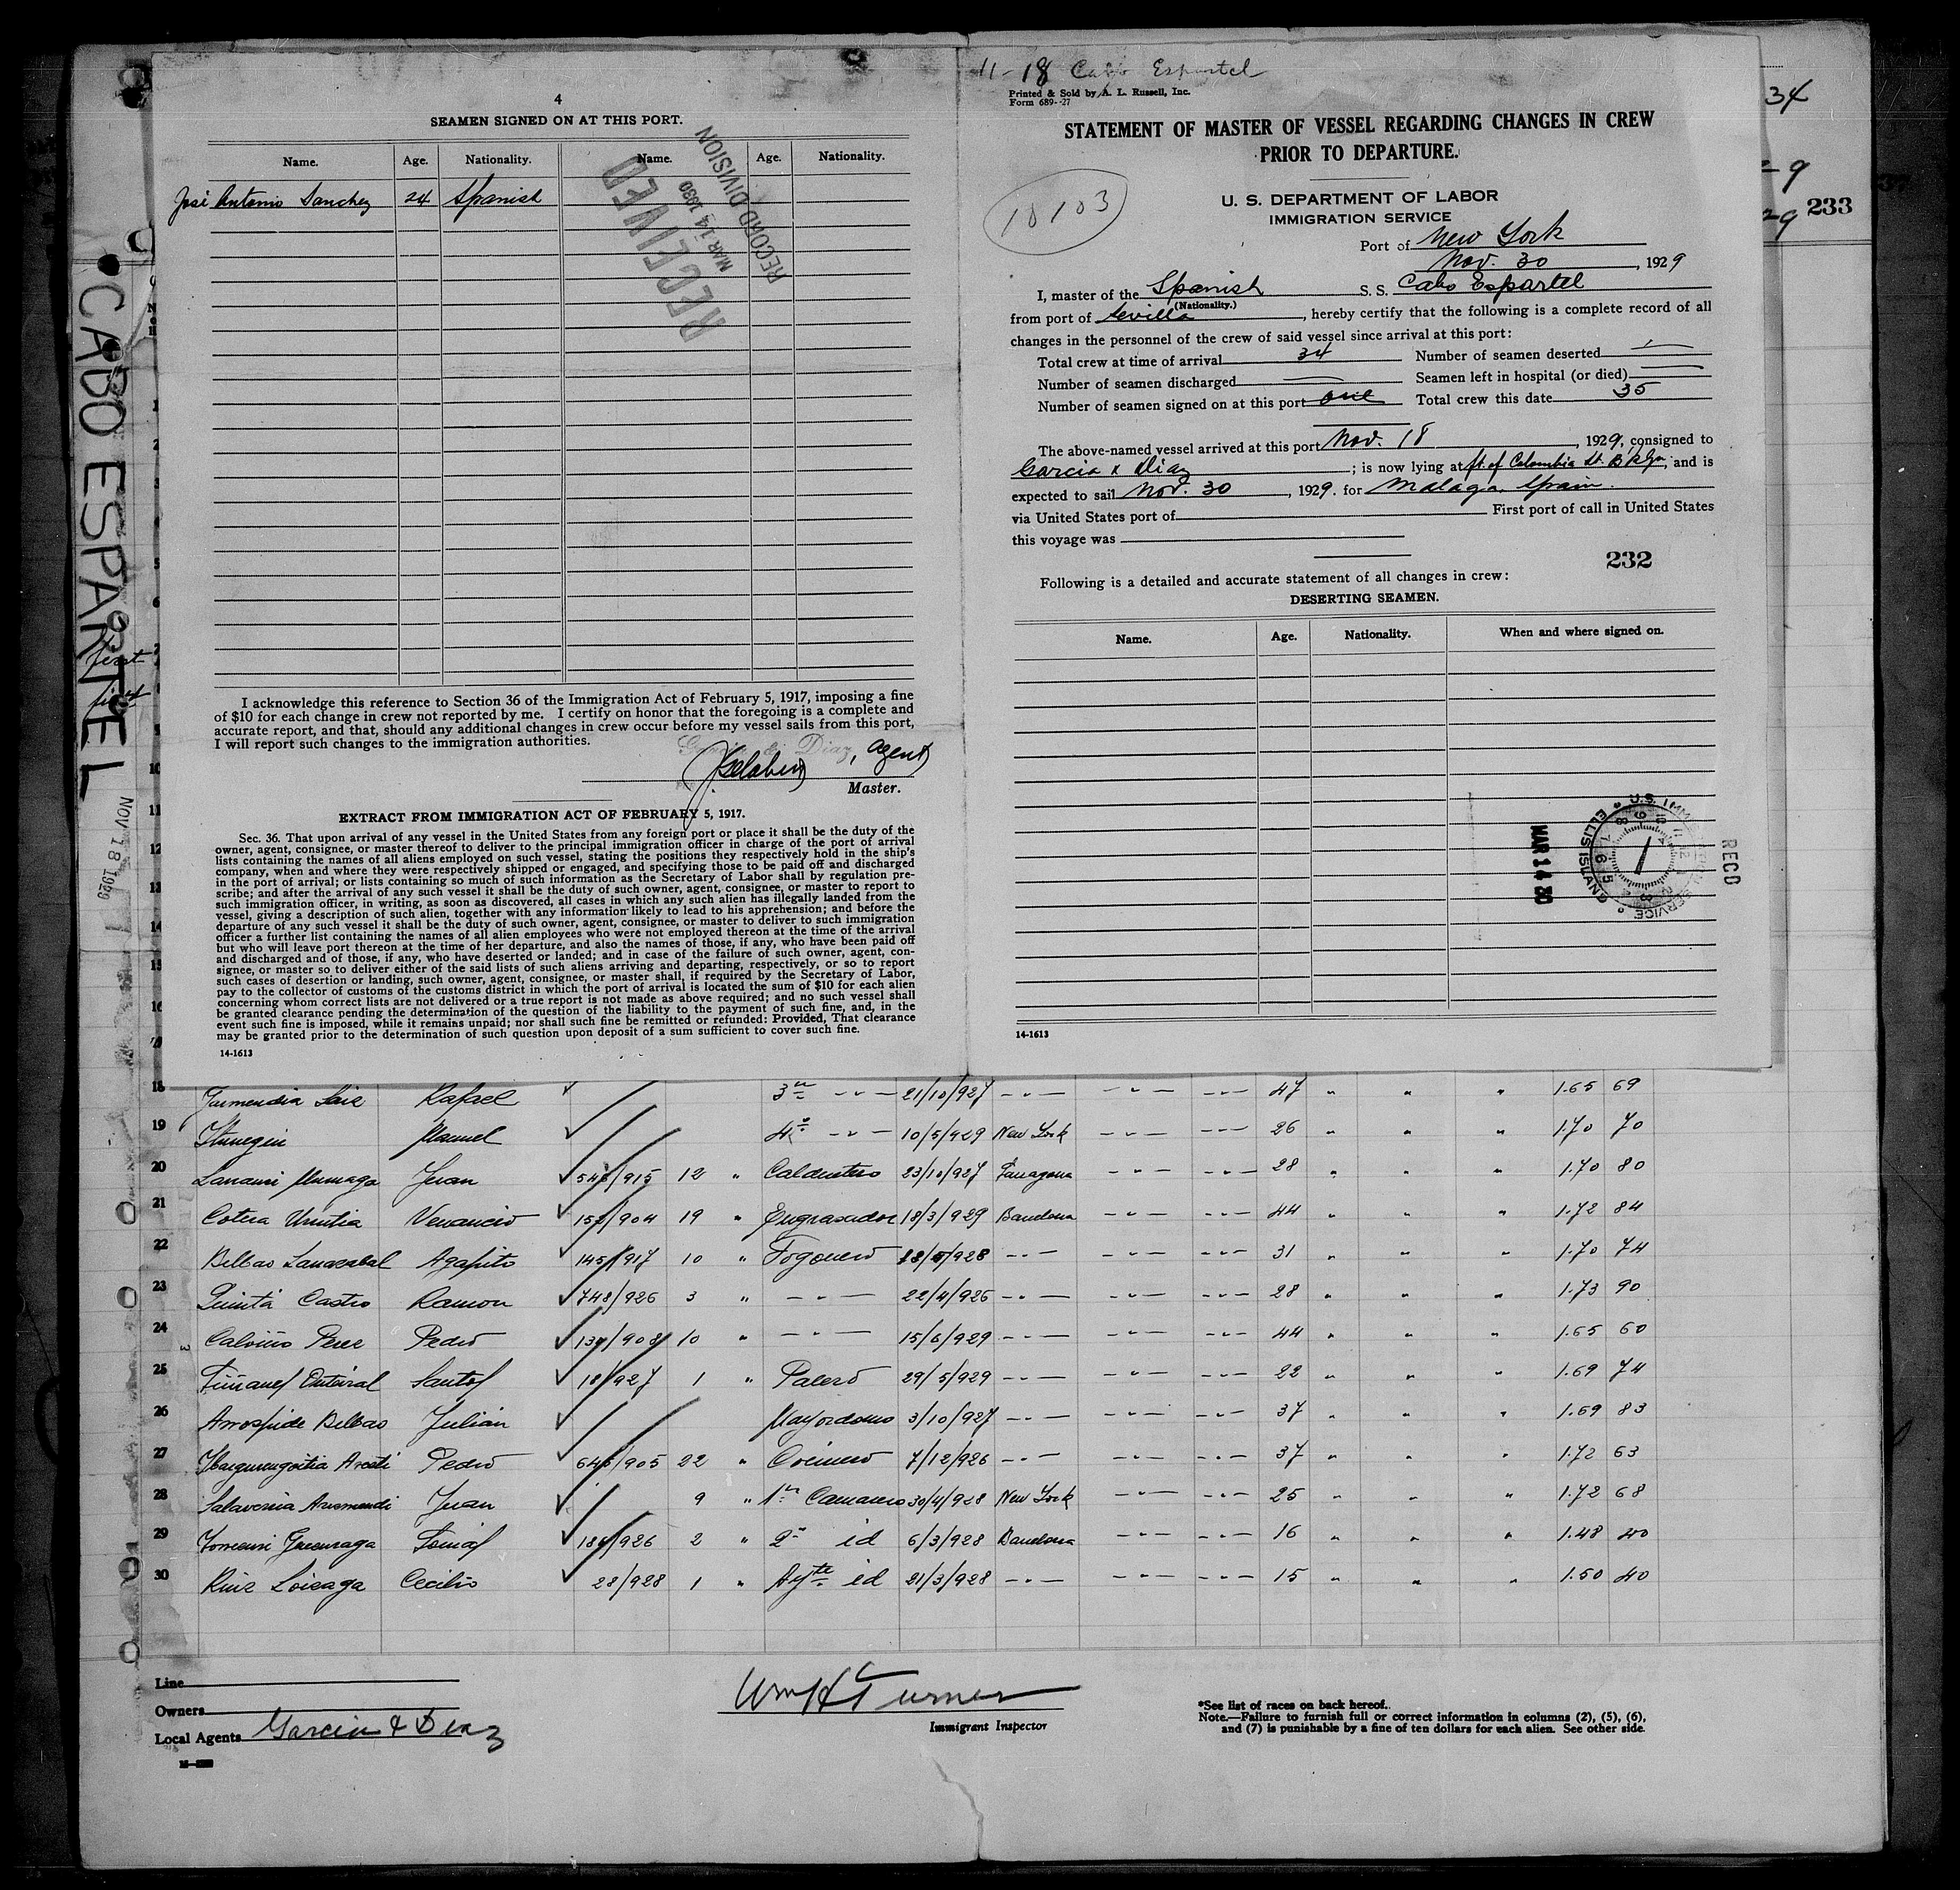 4
SEAMEN SIGNED ON AT THIS PORT.
Name. Age. Nationality. Name. Age. Nationality.
José Antonio Sanchez 24 Spanish
RECEIVED
MAR 14 1930
RECORD DIVISION
I acknowledge this reference to Section 36 of the Immigration Act of February 5, 1917, imposing a fine
of $10 for each change in crew not reported by me. I certify on honor that the foregoing is a complete and
accurate report, and that, should any additional changes in crew occur before my vessel sails from this port,
I will report such changes to the immigration authorities.
Garcia & Diaz, agent
Master.
EXTRACT FROM IMMIGRATION ACT OF FEBRUARY 5, 1917.
Sec. 36. That upon arrival of any vessel in the United States from any foreign port or place it shall be the duty of the
owner, agent, consignee, or master thereof to deliver to the principal immigration officer in charge of the port of arrival
lists containing the names of all aliens employed on such vessel, stating the positions they respectively hold in the ship's
company, when and where they were respectively shipped or engaged, and specifying those to be paid off and discharged
in the port of arrival; or lists containing so much of such information as the Secretary of Labor shall by regulation pre-
scribe; and after the arrival of any such vessel it shall be the duty of such owner, agent, consignee, or master to report to
such immigration officer, in writing, as soon as discovered, all cases in which any such alien has illegally landed from the
vessel, giving a description of such alien, together with any information likely to lead to his apprehension; and before the
departure of any such vessel it shall be the duty of such owner, agent, consignee, or master to deliver to such immigration
officer a further list containing the names of all alien employees who were not employed thereon at the time of the arrival
but who will leave port thereon at the time of her departure, and also the names of those, if any, who have been paid off
and discharged and of those, if any, who have deserted or landed; and in case of the failure of such owner, agent, con-
signee, or master so to deliver either of the said lists of such aliens arriving and departing, respectively, or so to report
such cases of desertion or landing, such owner, agent, consignee, or master shall, if required by the Secretary of Labor,
pay to the collector of customs of the customs district in which the port of arrival is located the sum of $10 for each alien
concerning whom correct lists are not delivered or a true report is not made as above required; and no such vessel shall
be granted clearance pending the determination of the question of the liability to the payment of such fine, and, in the
event such fine is imposed, while it remains unpaid; nor shall such fine be remitted or refunded: Provided, That clearance
may be granted prior to the determination of such question upon deposit of a sum sufficient to cover such fine.
14-1613
11-18 Cabo Espartel
Printed & Sold by A. L. Russell, Inc.
Form 689--27
STATEMENT OF MASTER OF VESSEL REGARDING CHANGES IN CREW
PRIOR TO DEPARTURE.
10103
U. S. DEPARTMENT OF LABOR
IMMIGRATION SERVICE
Port of New York
Nov. 30, 1929
I, master of the Spanish S. S. Cabo Espartel
(Nationality.)
from port of Sevilla, hereby certify that the following is a complete record of all
changes in the personnel of the crew of said vessel since arrival at this port:
Total crew at time of arrival 34 Number of seamen deserted —
Number of seamen discharged — Seamen left in hospital (or died) —
Number of seamen signed on at this port one Total crew this date 35
The above-named vessel arrived at this port Nov. 18, 1929, consigned to
Garcia & Diaz; is now lying at ft. of Colombia St. Bklyn, and is
expected to sail Nov. 30, 1929. for Malaga, Spain.
via United States port of First port of call in United States
this voyage was
232
Following is a detailed and accurate statement of all changes in crew:
DESERTING SEAMEN.
Name. Age. Nationality. When and where signed on.
U.S. IMMIGRATION SERVICE ELLIS ISLAND
MAR 14 30
RECD
14-1613
34
233
CABO ESPARTEL
first
NOV 18 1929
18 Rafael 3º - " - 21/10/927 - " - - " - - " - 47 " " " 1.65 69
19 Manuel 4º - " - 10/5/929 New York - " - - " - 26 " " " 1.70 70
20 Juan 12 " 23/10/927 Tarragona - " - - " - 28 " " " 1.70 80
21 Cotera Urrutia Venancio 19 " Engrasador 18/3/929 Barcelona - " - - " - 44 " " " 1.72 84
22 Bilbao Agapito 145/917 10 " Fogonero - " - - " - - " - 31 " " " 1.70 74
23 Castro Ramon 748/926 3 " - " - 22/4/926 - " - - " - - " - 28 " " " 1.73 90
24 Calviño Perez Pedro 10 " - " - 15/6/929 - " - - " - - " - 44 " " " 1.65 60
25 Santos 18/927 1 " Palero 29/5/929 - " - - " - - " - 22 " " " 1.69 74
26 Arrospide Bilbao Julián Mayordomo 3/10/927 - " - - " - - " - 37 " " " 1.69 83
27 Ibargurengoitia Aresti Pedro 22 " Cocinero 7/12/926 - " - - " - - " - 37 " " " 1.72 63
28 Salaverria Juan 9 " 1er Camarero 30/4/928 New York - " - - " - 25 " " " 1.72 68
29 Tomás 2 " 2º id 6/3/928 Barcelona - " - - " - 16 " " " 1.48 40
30 Ruiz Loizaga Cecilio 28/928 1 " Ayte id 21/3/928 - " - - " - - " - 15 " " " 1.50 40
Line
Owners
Local Agents Garcia & Diaz
Wm H Turner
Immigrant Inspector
*See list of races on back hereof.
Note.—Failure to furnish full or correct information in columns (2), (5), (6),
and (7) is punishable by a fine of ten dollars for each alien. See other side.